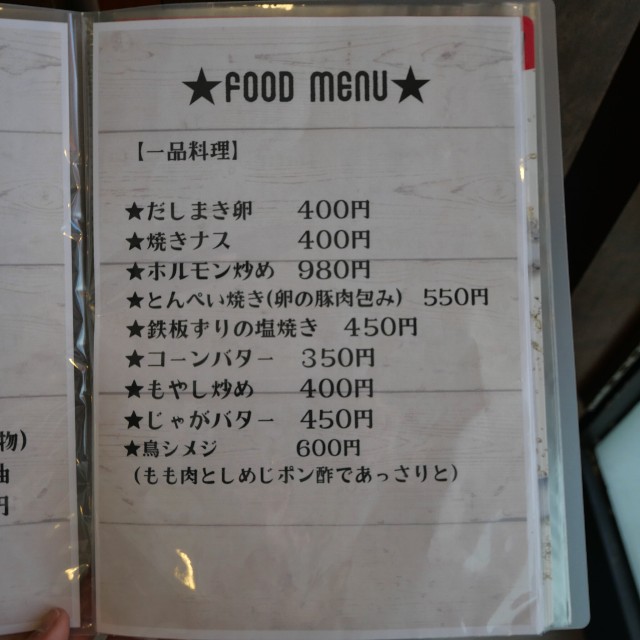 ★FOOD MENU★
【一品料理】
★だしまき卵 400円
★焼きナス 400円
★ホルモン炒め 980円
★とんぺい焼き(卵の豚肉包み) 550円
★鉄板ずりの塩焼き 450円
★コーンバター 350円
★もやし炒め 400円
★じゃがバター 450円
★鳥シメジ 600円
(もも肉としめじポン酢であっさりと)
物)
油
円